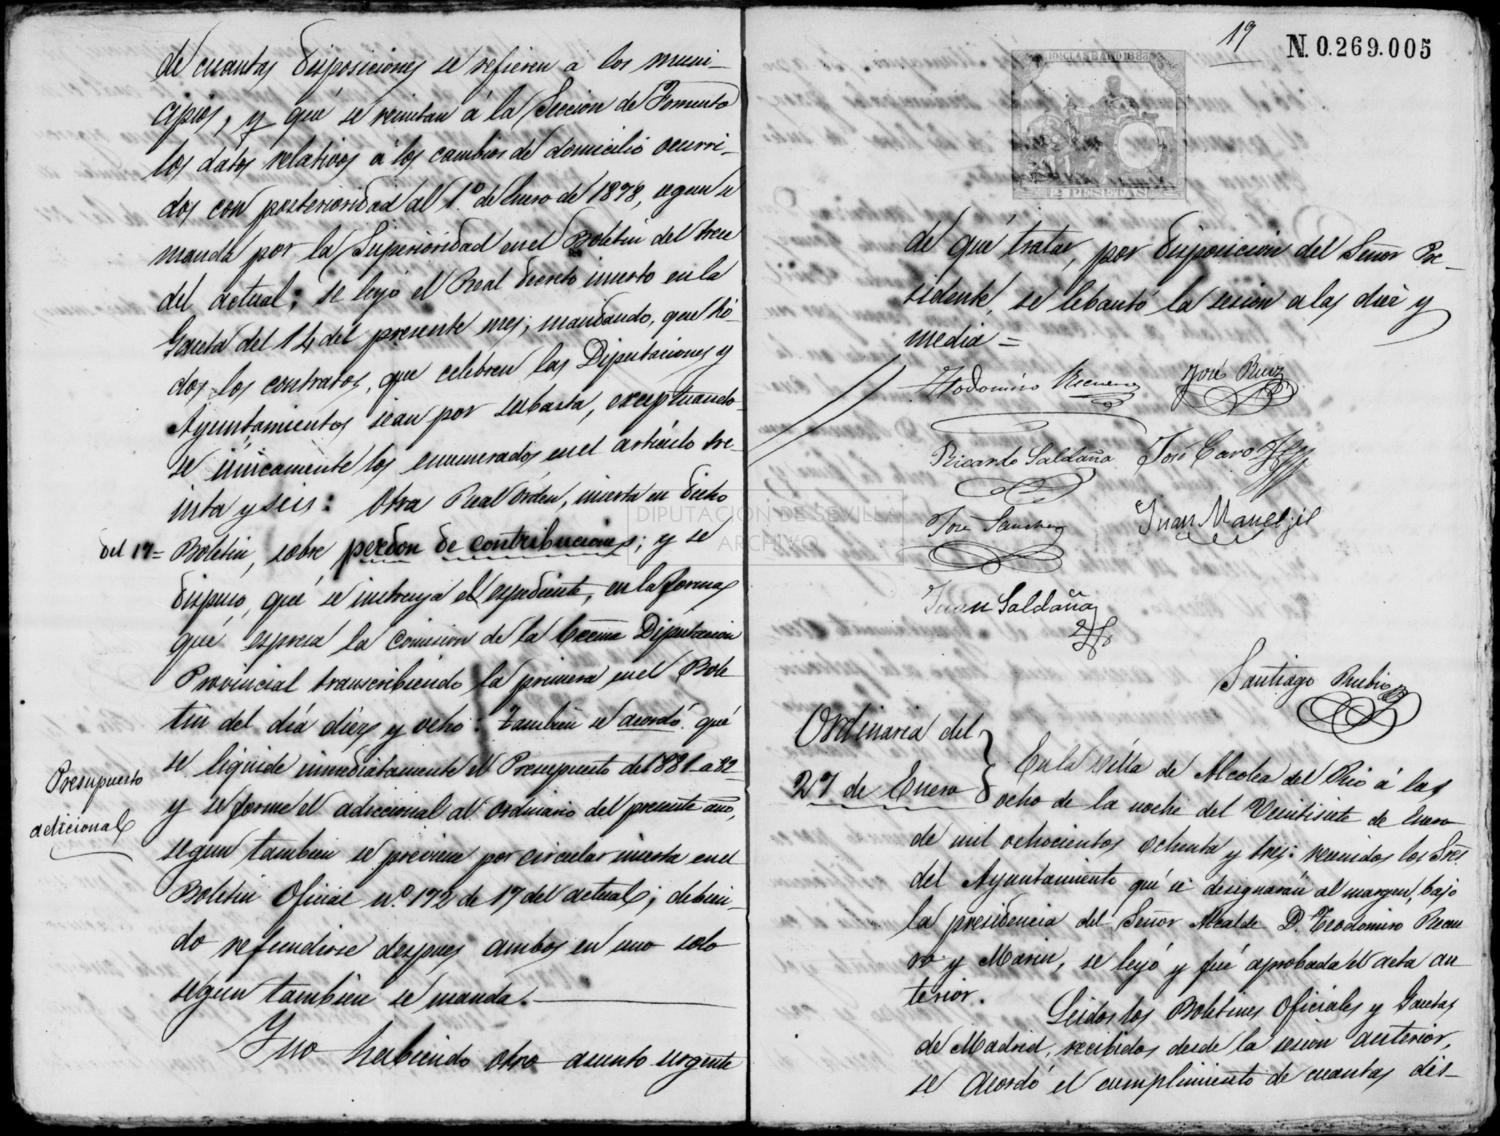 de cuantas disposiciones se refieren a los muni-
cipios, y que se remitan á la Seccion de Fomento
los datos relativos á los cambios de domicilio ocurri-
dos con posterioridad al 1.º de Enero de 1878, segun se
manda por la Superioridad en el Boletin del trece
del actual; se leyó el Real decreto inserto en la
Gaceta del 14 del presente mes, mandando, que to-
dos los contratos, que celebren las Diputaciones y
Ayuntamientos sean por subasta, exceptuando-
se únicamente los enumerados en el artículo tre-
inta y seis: Otra Real Orden, inserta en dicho
del 17= Boletin, sobre perdon de contribuciones; y se
dispuso, que se instruya el espediente, en la forma
que espresa la comision de la Excma Diputacion
Provincial transcribiendo la primera en el Bole
tin del dia diez y ocho: Tambien se acordó que
se liquide inmediatamente el Presupuesto de 1881 a 82
Presupuesto
adicional
y se forme el adiccional al ordinario del presente año,
segun tambien se previene por circular inserta en el
Boletin Oficial n.º 172 de 17 del actual; debien-
do refundirse despues ambos en uno solo
segun tambien se manda.
Y no habiendo otro asunto urgente
19
N.0.269.005
10ª CLASE AÑO 1883
2 PESETAS
de qué tratar, por disposicion del Señor Pre-
sidente, se lebantó la sesion a las diez y
media =
Teodomiro Recuero
José Ruiz
Ricardo Saldaña
José Caro
José Sanchez
Juan Man.l Gil
Juan Saldaña
Santiago Rubio
Ordinaria del
27 de Enero
En la Villa de Alcolea del Rio á las
ocho de la noche del Veintisiete de Enero
de mil ochocientos ochenta y tres: reunidos los Sres.
del Ayuntamiento que se designarán al margen, bajo
la presidencia del Señor Alcalde D. Teodomiro Recue
ro y Marin, se leyó y fué aprobada el acta an
terior.
Leidos los Boletines Oficiales y Gacetas
de Madrid, recibidos desde la sesion anterior,
se acordó el cumplimiento de cuantas dis-
DIPUTACION DE SEVILLA
ARCHIVO